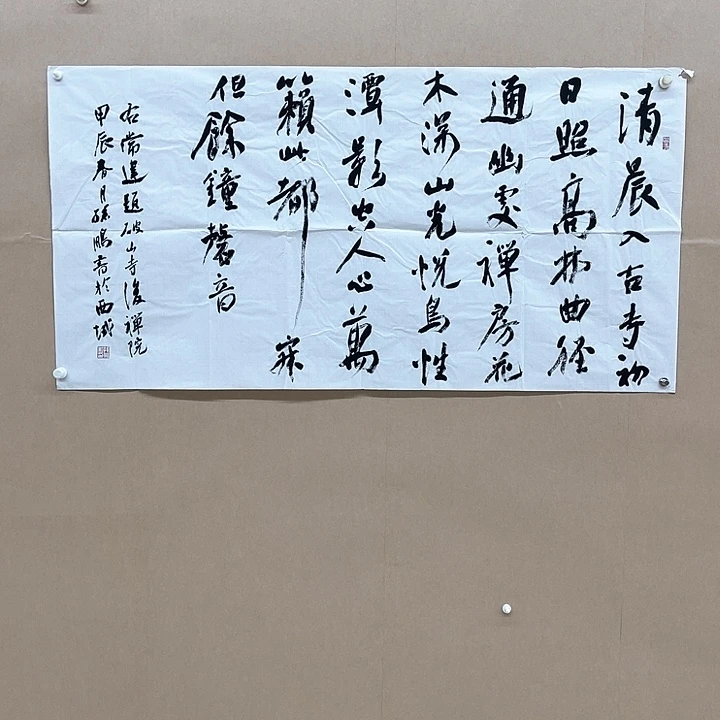 清晨入古寺初
日照高林曲徑
通幽處禪房花
木深山光悦鳥性
潭影空人心萬
籟此都寂
但餘鐘磬音
右常建題破山寺後禪院
甲辰春月孫鵬書於西域